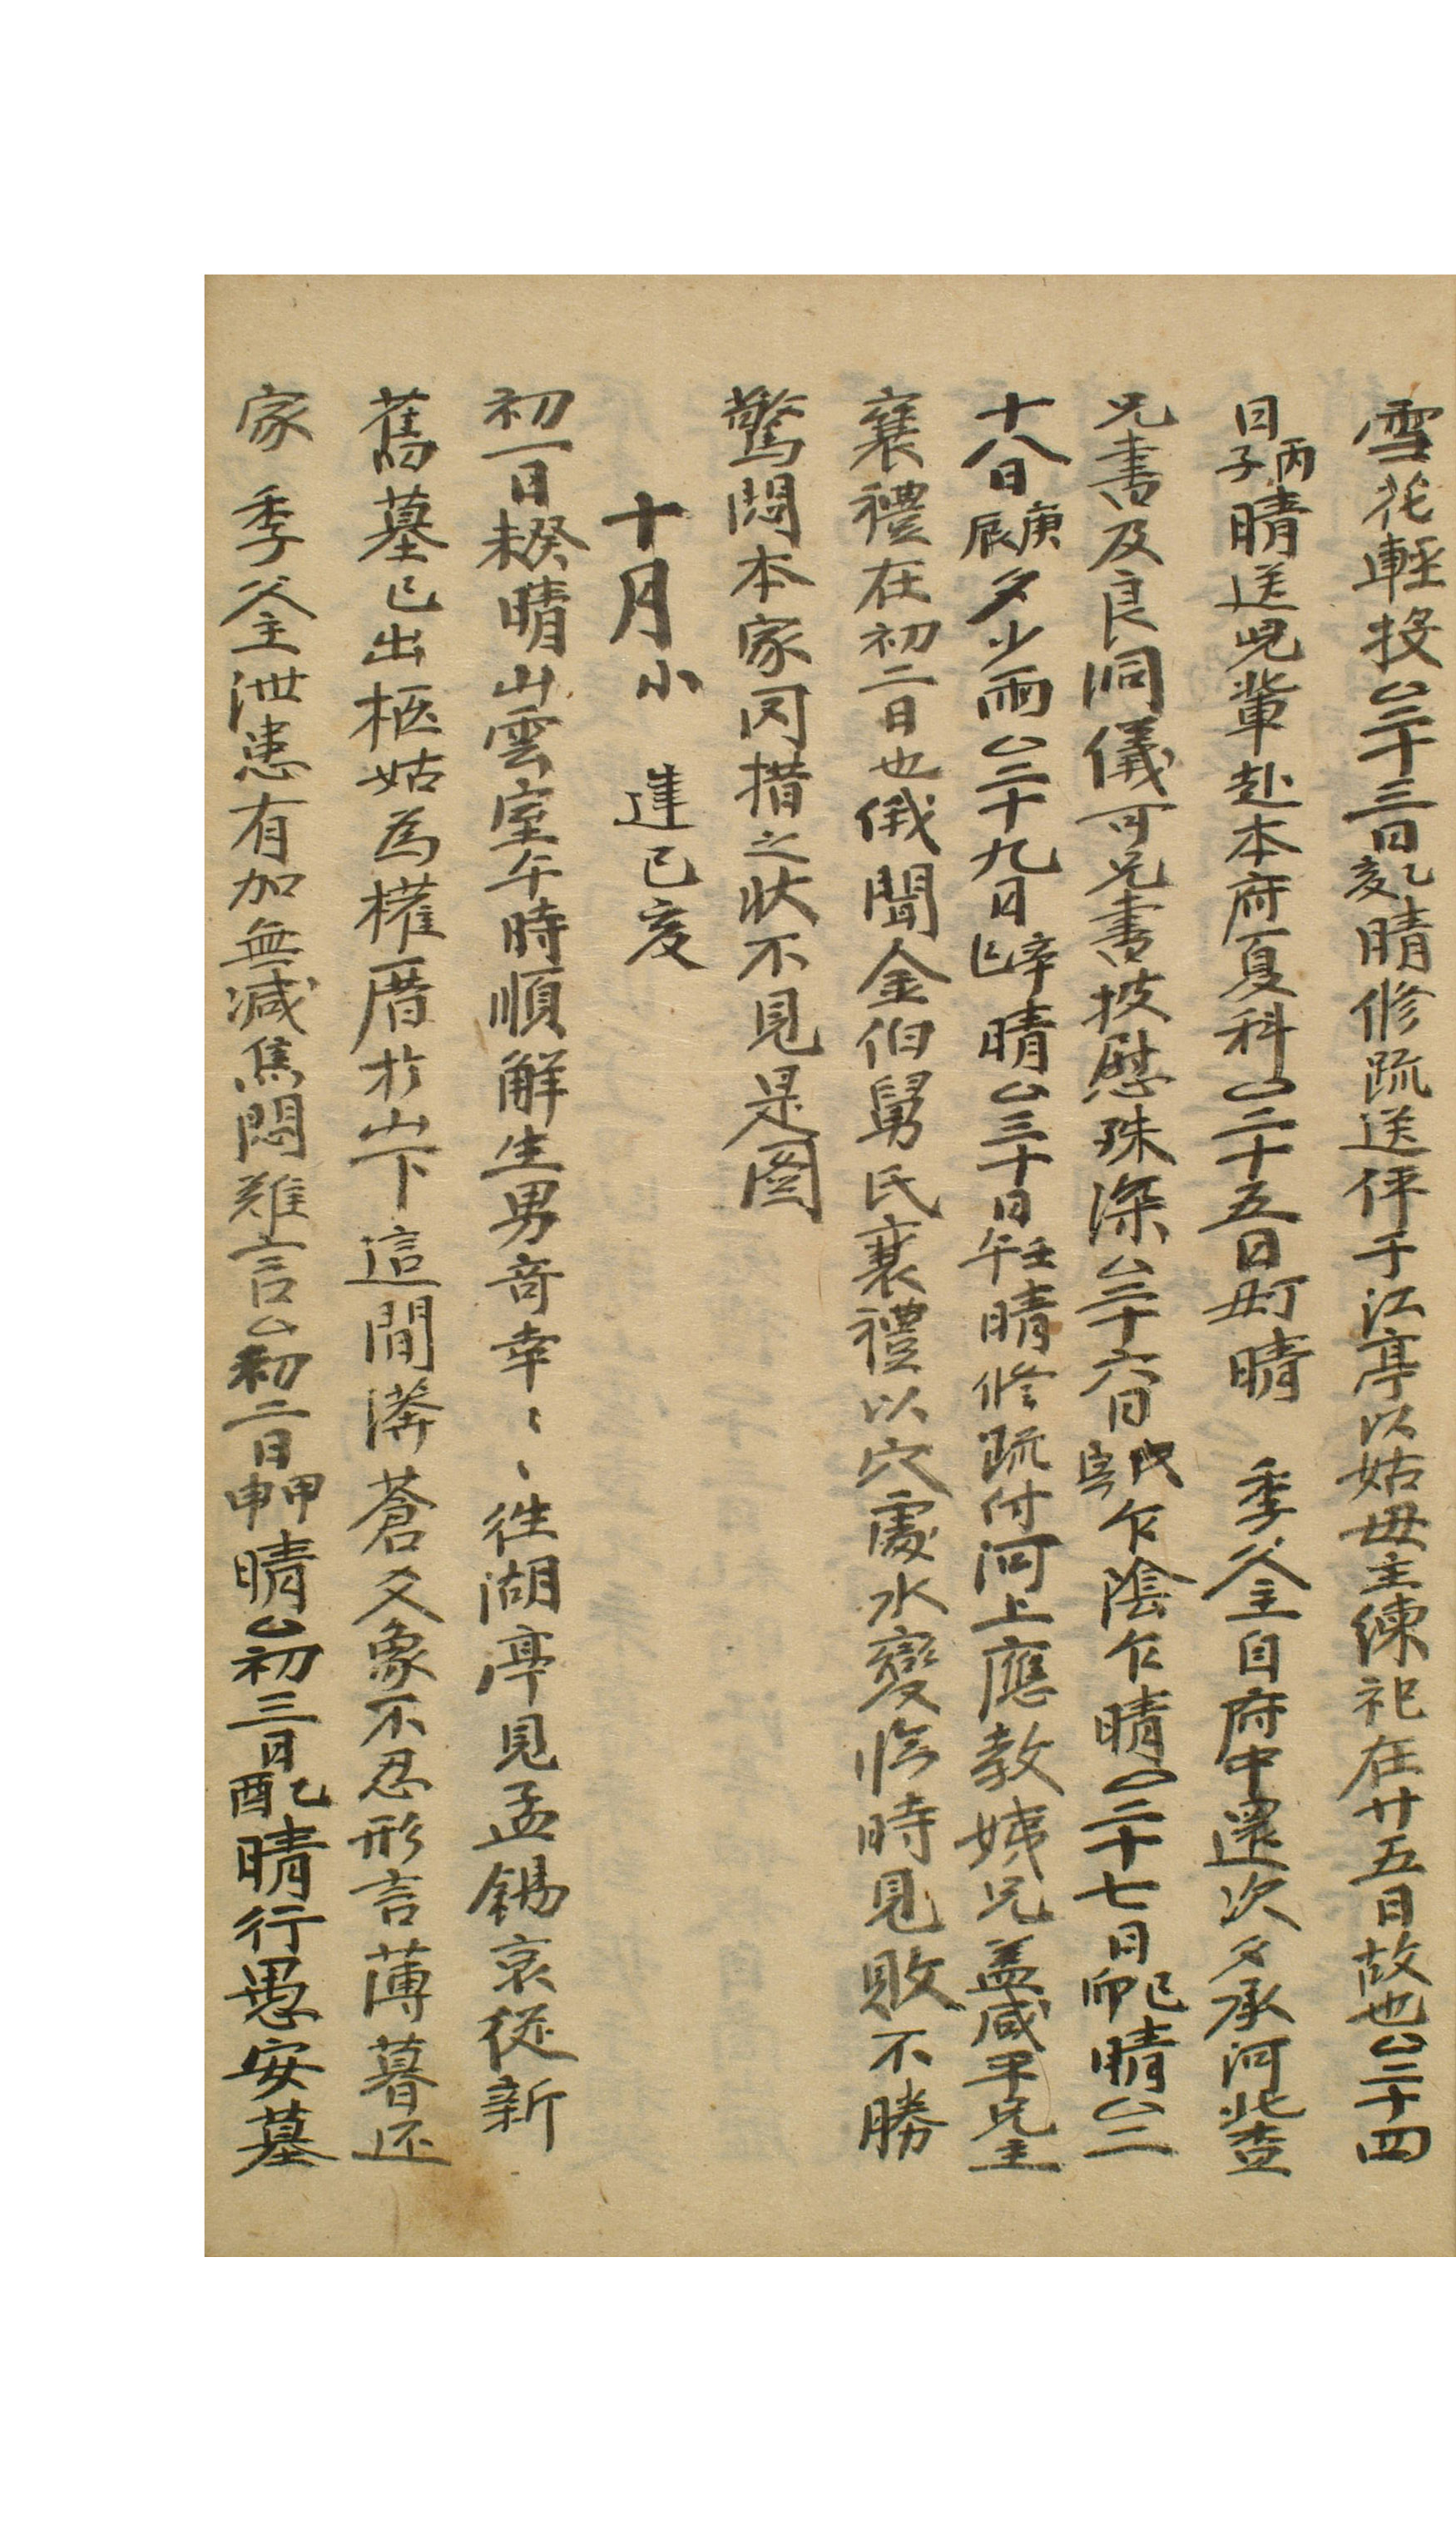 雪花輕投△二十三日乙亥晴修疏送伻于江亭以姑母主練祀在廿五日故也△二十四
日丙子晴送兒輩赴本府夏科○二十五日丁丑晴 季父主自府中還次夕承河北査
兄書及良洞儀可兄書披慰殊深△二十六日戊寅乍陰乍晴○二十七日己卯晴△二
十八日庚辰夕少雨△二十九日辛巳晴△三十日壬午晴修疏付河上應教姨兄盖咸平兄主
襄禮在初二日也俄聞金伯舅氏襄禮以穴處水變臨時見敗不勝
驚悶本家罔措之狀不見是圖
十月小 建己亥
初一日癸未晴山雲室午時順解生男奇幸〻〻徃湖亭見孟錫哀從新
舊墓已出柩姑爲權厝於山下這間滿蒼爻象不忍形言薄暮还
家 季父主泄患有加無减焦悶難言△初二日甲申晴△初三日乙酉晴行愚安墓